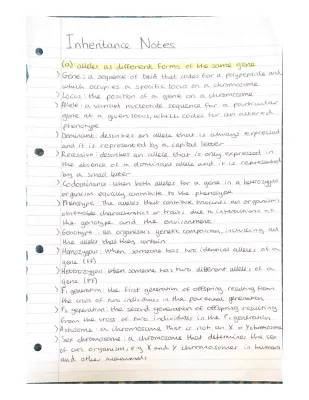 Inheritance Notes
(a) alleles as different forms of the same gene
) Gene: a sequence of DNA that codes for a polypeptide and
which occupies a specific locus on a chromosome
) Locus: the position of a gene on a chromosome
) Allele: a variant nucleotide sequence for a particular
gene at a given locus, which codes for an altered
phenotype
) Dominant: describes an allele that is always expressed
and it is represented by a capital letter
) Recessive: describes an allele that is only expressed in
the absence of a dominant allele and it is represented
by a small letter
) Codominance: when both alleles for a gene in a heterozygous
organism equally contribute to the phenotype
) Phenotype: The alleles that contribute towards an organism's
observable characteristics or traits due to interactions of
the genotype and the environment
) Genotype: an organism's genetic composition, including all
the alleles that they contain
) Homozygous: when someone has two identical alleles of a
gene (FF)
) Heterozygous: when someone has two different alleles of a
gene (Ff)
) F₁ generation: the first generation of offspring resulting
from the cross of two individuals in the parental generation
) F₂ generation: the second generation of offspring resulting
from the cross of two individuals in the F₁ generation
) Autosome: a chromosome that is not an X or Y chromosome
) Sex chromosome: a chromosome that determines the sex
of an organism, e.g X and Y chromosomes in humans
and other mammals